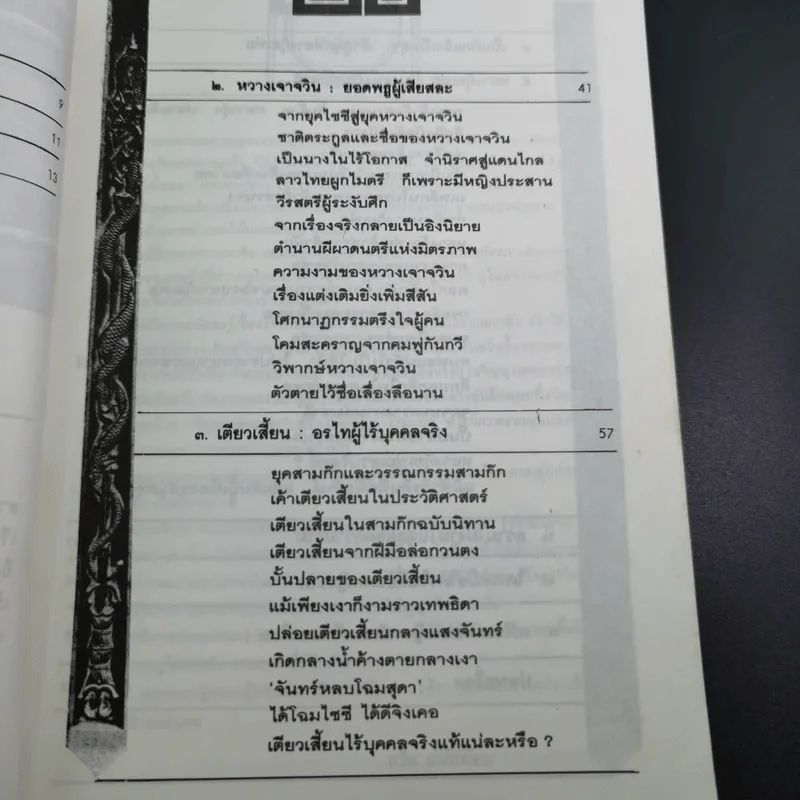 9
11
13
๒. หวางเจาจวิน : ยอดพธูผู้เสียสละ 41
จากยุคไซซีสู่ยุคหวางเจาจวิน
ชาติตระกูลและชื่อของหวางเจาจวิน
เป็นนางในไร้โอกาส จำนิราศสู่แดนไกล
ลาวไทยผูกไมตรี ก็เพราะมีหญิงประสาน
วีรสตรีผู้ระงับศึก
จากเรื่องจริงกลายเป็นอิงนิยาย
ตำนานผีผาดนตรีแห่งมิตรภาพ
ความงามของหวางเจาจวิน
เรื่องแต่งเติมยิ่งเพิ่มสีสัน
โศกนาฏกรรมตรึงใจผู้คน
โคมสะคราญจากคมพู่กันกวี
วิพากษ์หวางเจาจวิน
ตัวตายไว้ชื่อเลื่องลือนาน
๓. เตียวเสี้ยน : อรไทผู้ไร้บุคคลจริง 57
ยุคสามก๊กและวรรณกรรมสามก๊ก
เค้าเตียวเสี้ยนในประวัติศาสตร์
เตียวเสี้ยนในสามก๊กฉบับนิทาน
เตียวเสี้ยนจากฝีมือล่อกวนตง
บั้นปลายของเตียวเสี้ยน
แม้เพียงเงาก็งามราวเทพธิดา
ปล่อยเตียวเสี้ยนกลางแสงจันทร์
เกิดกลางน้ำค้างตายกลางเงา
‘จันทร์หลบโฉมสุดา’
ได้โฉมไซซี ได้ดีจิงเคอ
เตียวเสี้ยนไร้บุคคลจริงแท้แน่ละหรือ ?